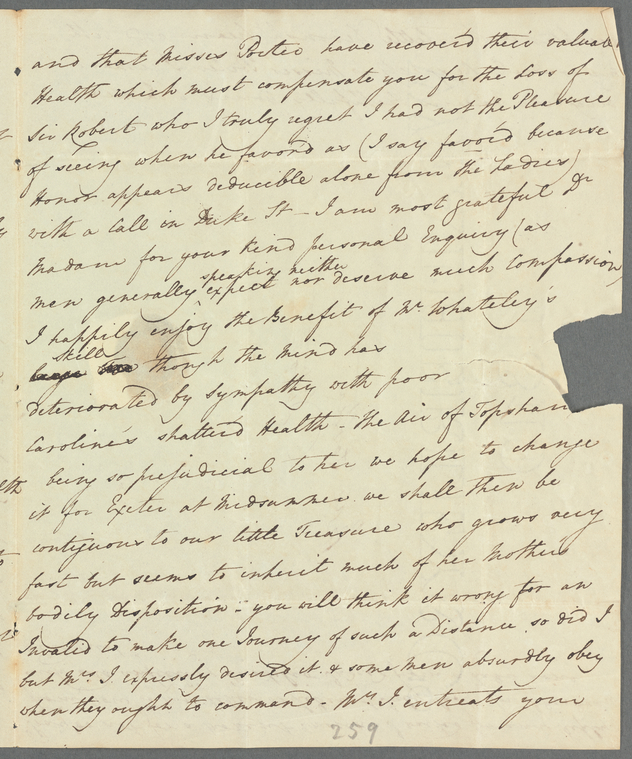 and that Misses Porter have recoverd their valuab
Health which must compensate you for the Loss of
Sir Robert who I truly regret I had not the Pleasure
of seeing when he favord us (I say favord because
Honor appears deducible alone from the Ladies)
with a Call in Duke St - I am most grateful Dr
Madam for your kind personal Enquiry (as
speaking neither
men generally expect nor deserve much Compassion)
I happily enjoy the Benefit of Mr. Whateley's
Skill
though the Mind has
deteriorated by Sympathy with poor
Caroline's shatterd Health - the Air of Topsham
being so prejudicial to her we hope to change
it for Exeter at Midsummer we shall then be
contiguous to our little Treasure who grows very
fast but seems to inherit much of her Mothers
bodily Disposition - you will think it wrong for an
Invalid to make one Journey of such a Distance so did I
but Mrs. I. expressly desired it & some men absurdly obey
when they ought to command - Mrs. I. entreats your
259